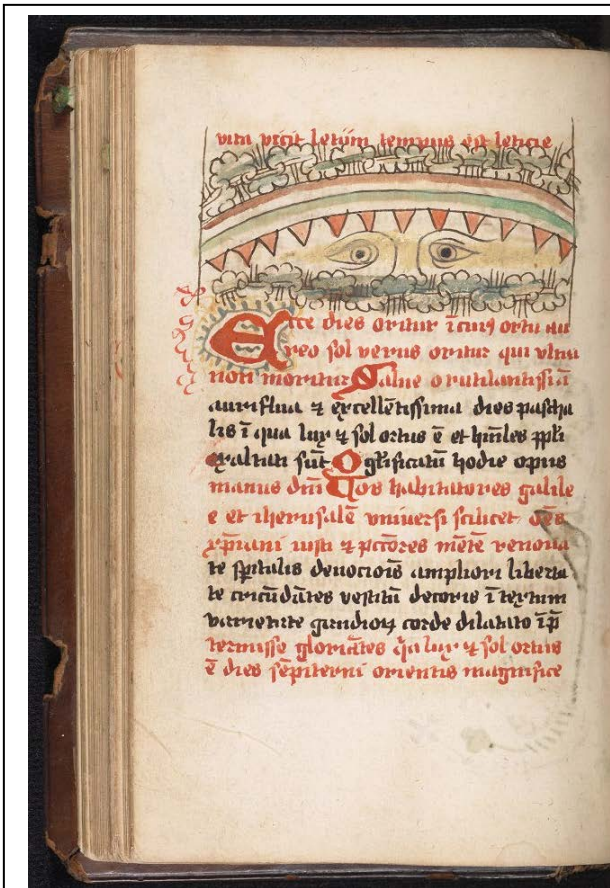 vita vicit letūm tempus est leticie
Ecce dies oritur ī cuiꝯ ortu au
reo sol verus oritur qui vltra
non moritur Salue o rutilantissīa
auriflua ⁊ excellētissima dies pascha
lis ī qua lux ⁊ sol ortus ē et hūīles ppl̄i
exaltati sūt O gl̄ificatū hodie opus
manus dn̄i Uos habitatores galile
e et iherusalē vniuersi scilicet oēs
xp̄iani iusti ⁊ pctōres mētē renoua
te sp̄italis deuociōis ampliori liberta
te circūdātes vestitū decoris ī textum
varietate gaudioꝝ corde dilatato īp̄
termisse gloriātes q̄a lux ⁊ sol ortus
ē dies sēpiterni orientis magnifice